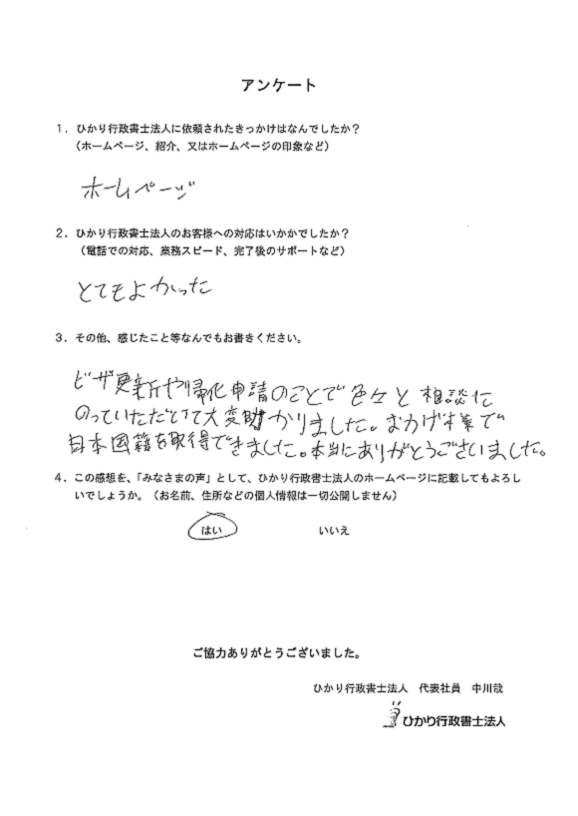 アンケート
1．ひかり行政書士法人に依頼されたきっかけはなんでしたか？
（ホームページ、紹介、又はホームページの印象など）
ホームページ
2．ひかり行政書士法人のお客様への対応はいかかでしたか？
（電話での対応、業務スピード、完了後のサポートなど）
とてもよかった
3．その他、感じたこと等なんでもお書きください。
ビザ更新や帰化申請のことで色々と相談に
のっていただいて大変助かりました。おかげ様で
日本国籍を取得できました。本当にありがとうございました。
4．この感想を、「みなさまの声」として、ひかり行政書士法人のホームページに記載してもよろし
いでしょうか。（お名前、住所などの個人情報は一切公開しません）
はい　いいえ
ご協力ありがとうございました。
ひかり行政書士法人　代表社員　中川哉
ひかり行政書士法人